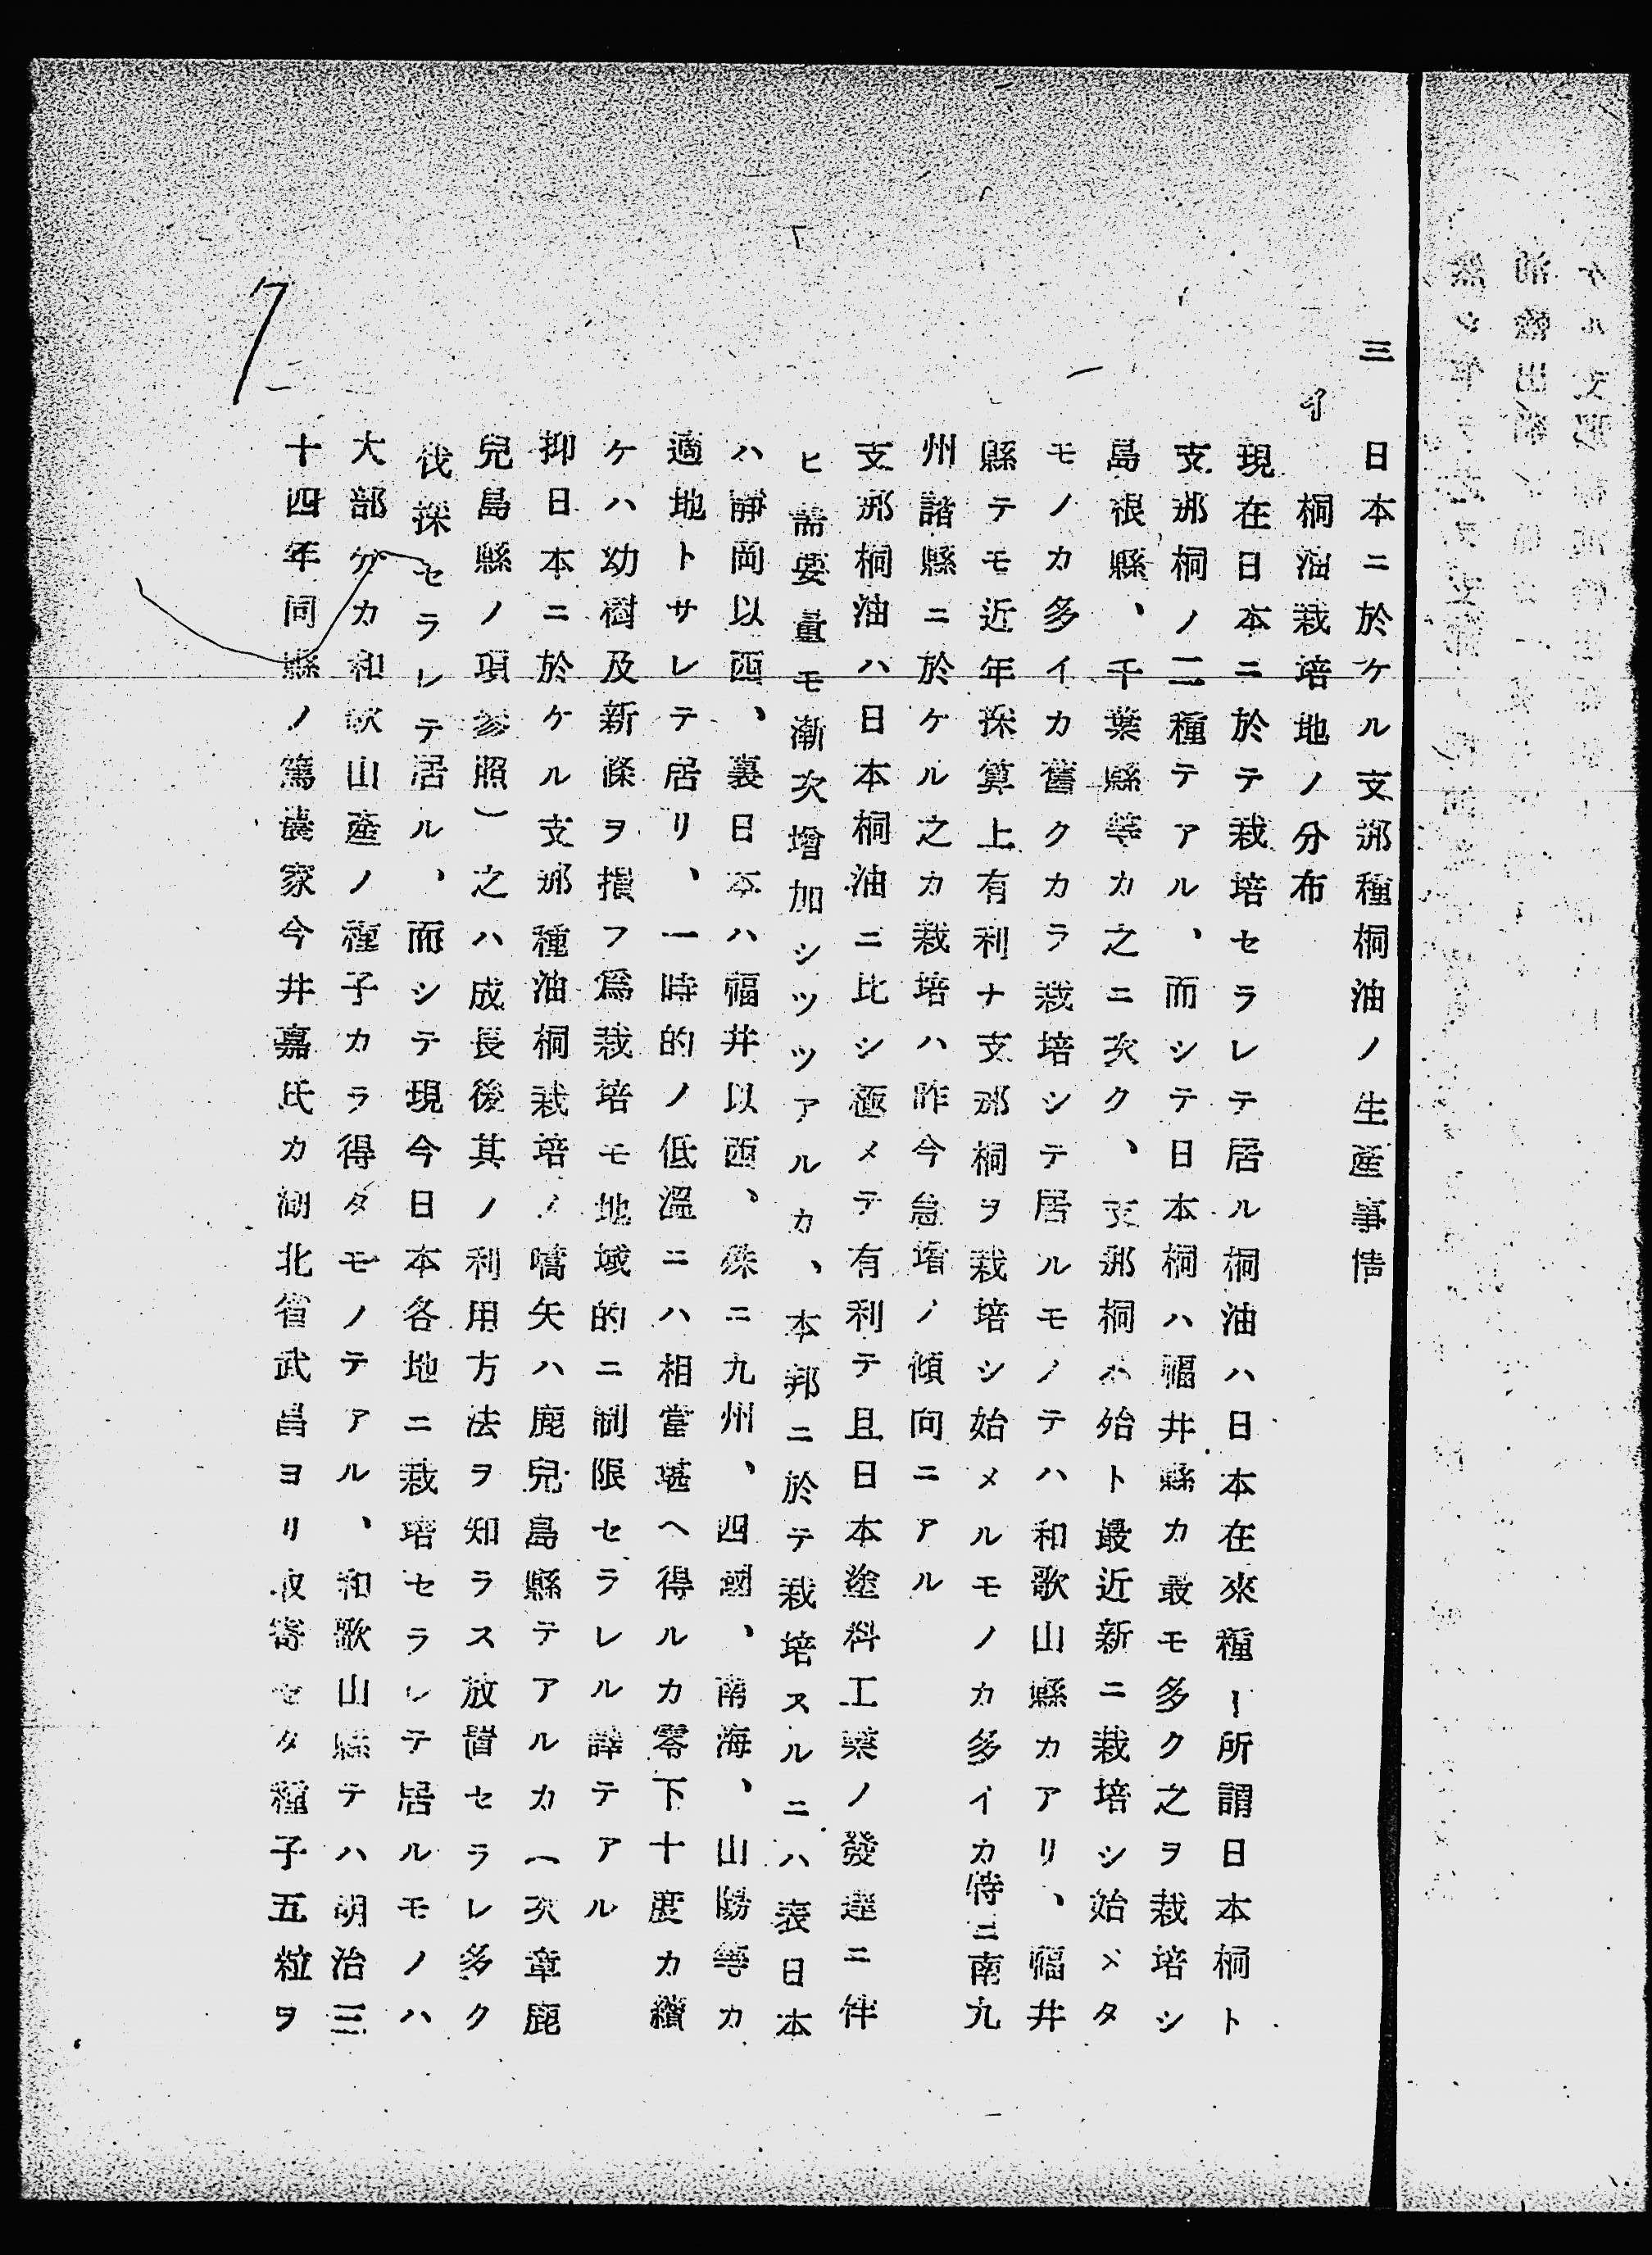 三　日本ニ於ケル支那種桐油ノ生産事情
イ　桐油栽培地ノ分布
現在日本ニ於テ栽培セラレテ居ル桐油ハ日本在來種ー所謂日本桐ト
支那桐ノ二種テアル、而シテ日本桐ハ福井縣カ最モ多ク之ヲ栽培シ
島根縣、千葉縣等カ之ニ次ク、支那桐ハ殆ト最近新ニ栽培シ始メタ
モノカ多イカ舊クカラ栽培シテ居ルモノテハ和歌山縣カアリ、福井
縣テモ近年採算上有利ナ支那桐ヲ栽培シ始メルモノカ多イカ特ニ南九
州諸縣ニ於ケル之カ栽培ハ昨今急増ノ傾向ニアル
支那桐油ハ日本桐油ニ比シ極メテ有利テ且日本塗料工業ノ發達ニ伴
ヒ需要量モ漸次增加シツツアルカ、本邦ニ於テ栽培スルニハ表日本
ハ靜岡以西、裏日本ハ福井以西、殊ニ九州、四國、南海、山陽等カ
適地トサレテ居リ、一時的ノ低溫ニハ相當堪ヘ得ルカ零下十度カ續
ケハ幼樹及新條ヲ損フ爲栽培モ地域的ニ制限セラレル譯テアル
抑日本ニ於ケル支那種油桐栽培ノ嚆矢ハ鹿兒島縣テアルカ（次章鹿
兒島縣ノ項參照）之ハ成長後其ノ利用方法ヲ知ラス放置セラレ多ク
伐採セラレテ居ル、而シテ現今日本各地ニ栽培セラレテ居ルモノハ
大部分カ和歌山產ノ種子カラ得タモノテアル、和歌山縣テハ明治三
十四年同縣ノ篤農家今井嘉氏カ湖北省武昌ヨリ取寄セタ種子五粒ヲ
7